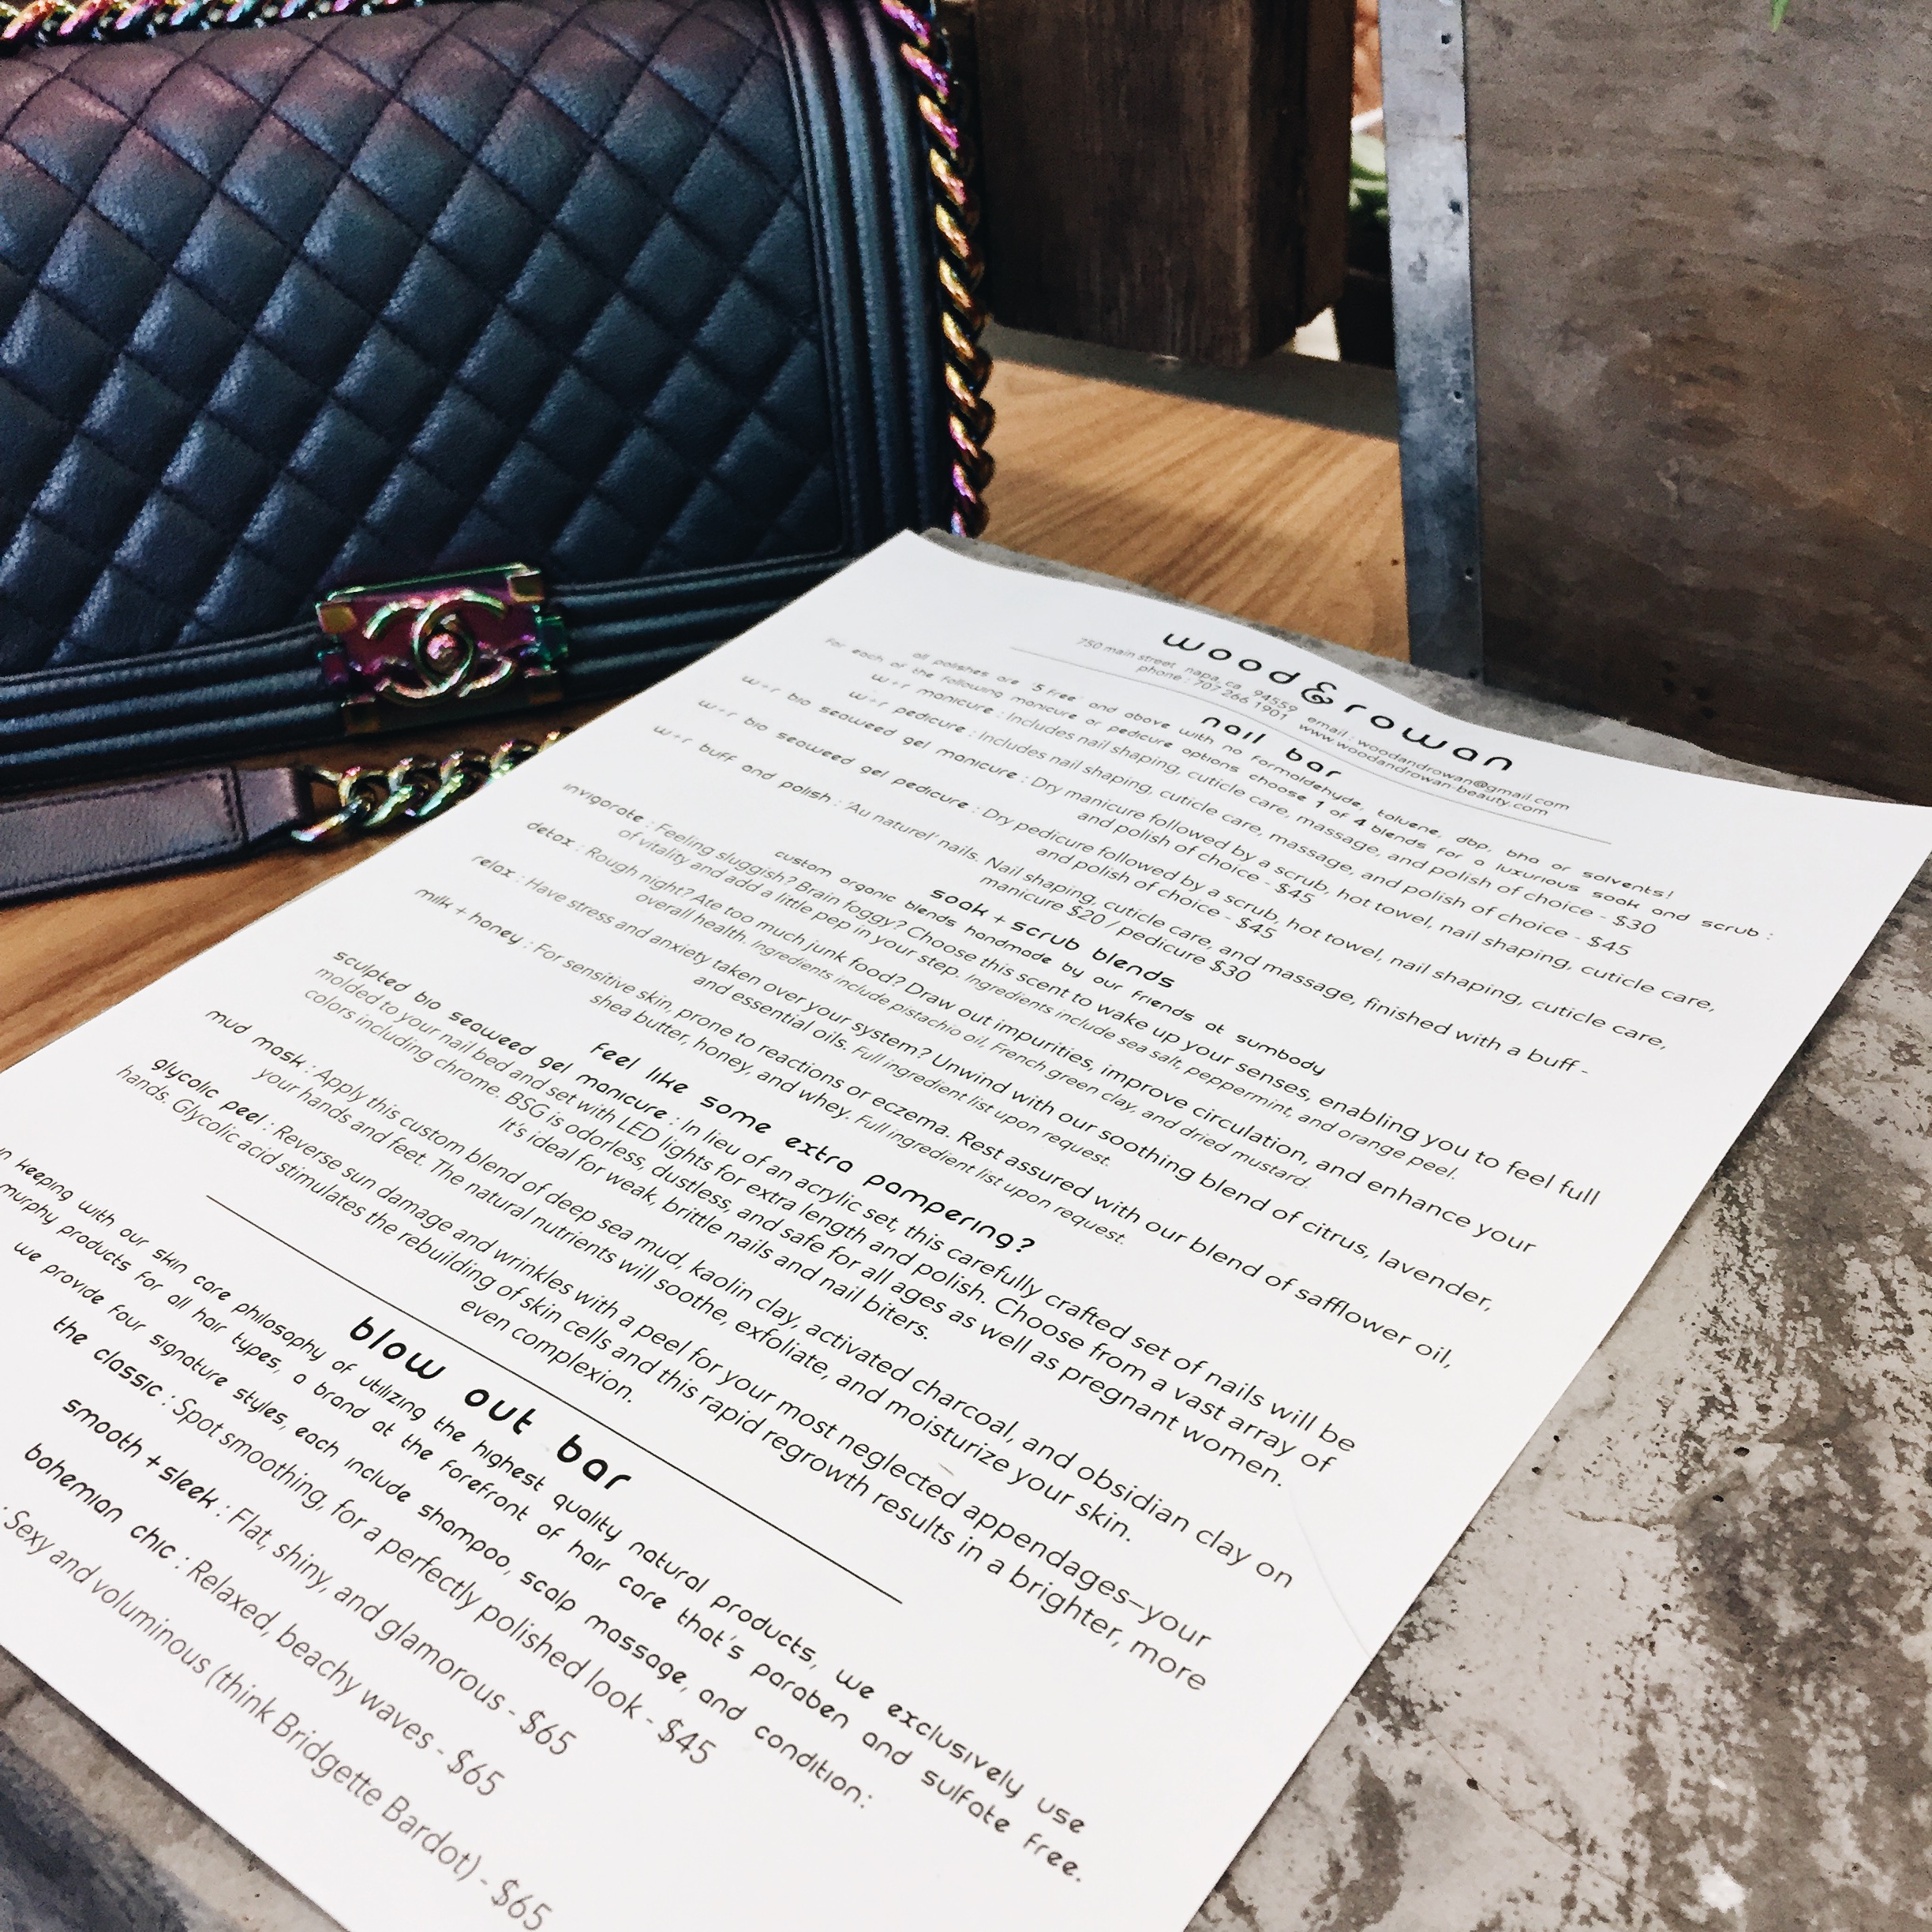 wood&rowan
750 main street napa, ca 94559 email : woodandrowan@gmail.com
phone : 707 266 1901 www.woodandrowan-beauty.com
nail bar
all polishes are '5 free' and above with no formaldehyde, toluene, dbp, bha or solvents!
For each of the following manicure or pedicure options choose 1 of 4 blends for a luxurious soak and scrub :
w+r manicure : Includes nail shaping, cuticle care, massage, and polish of choice - $30
w+r pedicure : Includes nail shaping, cuticle care, massage, and polish of choice - $45
w+r bio seaweed gel manicure : Dry manicure followed by a scrub, hot towel, nail shaping, cuticle care,
and polish of choice - $45
w+r bio seaweed gel pedicure : Dry pedicure followed by a scrub, hot towel, nail shaping, cuticle care,
and polish of choice - $45
w+r buff and polish : 'Au naturel' nails. Nail shaping, cuticle care, and massage, finished with a buff -
manicure $20 / pedicure $30
soak + scrub blends
custom organic blends handmade by our friends at sumbody
invigorate : Feeling sluggish? Brain foggy? Choose this scent to wake up your senses, enabling you to feel full
of vitality and add a little pep in your step. Ingredients include sea salt, peppermint, and orange peel.
detox : Rough night? Ate too much junk food? Draw out impurities, improve circulation, and enhance your
overall health. Ingredients include pistachio oil, French green clay, and dried mustard.
relax : Have stress and anxiety taken over your system? Unwind with our soothing blend of citrus, lavender,
and essential oils. Full ingredient list upon request.
milk + honey : For sensitive skin, prone to reactions or eczema. Rest assured with our blend of safflower oil,
shea butter, honey, and whey. Full ingredient list upon request.
feel like some extra pampering?
sculpted bio seaweed gel manicure : In lieu of an acrylic set, this carefully crafted set of nails will be
molded to your nail bed and set with LED lights for extra length and polish. Choose from a vast array of
colors including chrome. BSG is odorless, dustless, and safe for all ages as well as pregnant women.
It's ideal for weak, brittle nails and nail biters.
mud mask : Apply this custom blend of deep sea mud, kaolin clay, activated charcoal, and obsidian clay on
your hands and feet. The natural nutrients will soothe, exfoliate, and moisturize your skin.
glycolic peel : Reverse sun damage and wrinkles with a peel for your most neglected appendages–your
hands. Glycolic acid stimulates the rebuilding of skin cells and this rapid regrowth results in a brighter, more
even complexion.
blow out bar
in keeping with our skin care philosophy of utilizing the highest quality natural products, we exclusively use
murphy products for all hair types, a brand at the forefront of hair care that's paraben and sulfate free.
we provide four signature styles, each include shampoo, scalp massage, and condition:
the classic : Spot smoothing, for a perfectly polished look - $45
smooth + sleek : Flat, shiny, and glamorous - $65
bohemian chic : Relaxed, beachy waves - $65
: Sexy and voluminous (think Bridgette Bardot) - $65